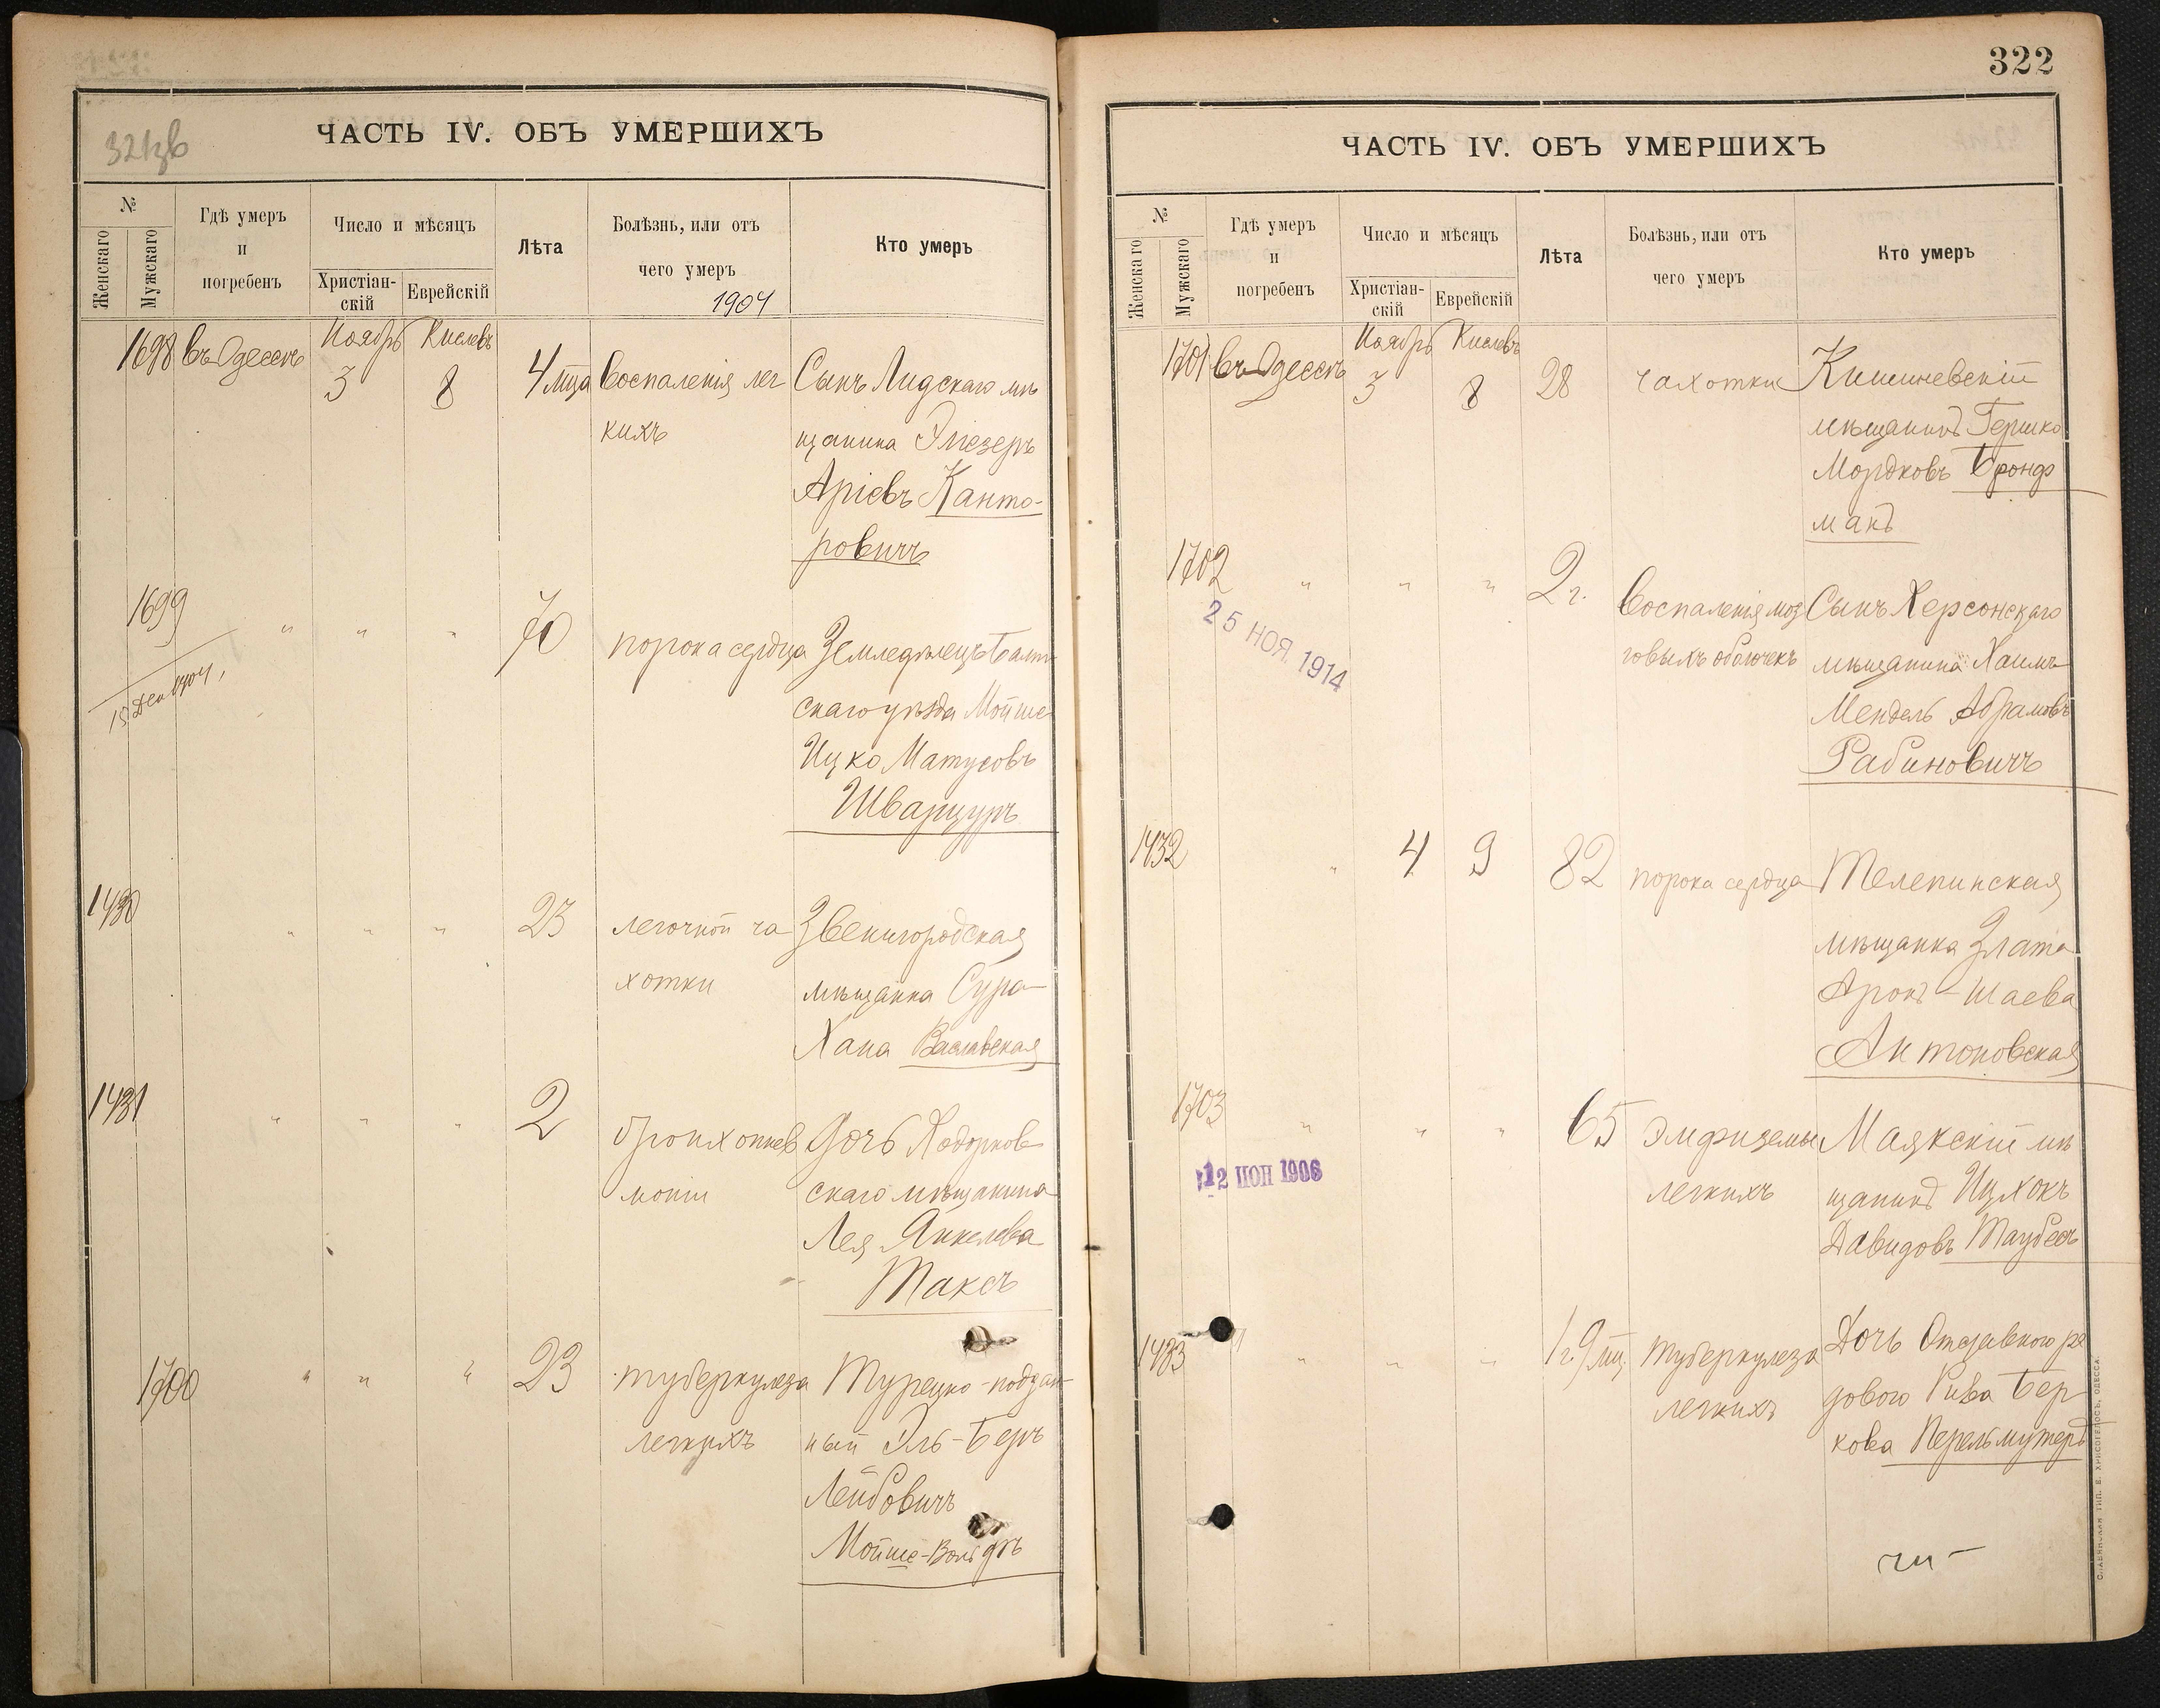 321зв
ЧАСТЬ IV. ОБЪ УМЕРШИХЪ
№
Женскаго
Мужскаго
Гдѣ умеръ
и
погребенъ
Число и мѣсяцъ
Христіан-
скій
Еврейскій
Лѣта
Болѣзнь, или отъ
чего умеръ
1904
Кто умеръ
Ноябрь Кислевъ
1698 въ Одессѣ 3 8 4 мца Воспаленія лег Сынъ Лидскаго мѣ
кихъ щанина Эліезеръ
Аріевъ Канто-
ровичъ
1699 " " " 70 порока сердца Земледѣлецъ Балт
15 Дек 1904,
скаго уѣзда Мойше
Ицко Матусовъ
Шварцуръ
1430 " " " 23 легочной ча Звенигородская
хотки мѣщанка Сура-
Хана Ваславская
1431 " " " 2 бронхопнев Дочь Ходорков
моніи скаго мѣщанина
Лея Янкелева
Таксъ
1700 " " " 23 туберкулеза Турецко-поддан
легкихъ ный Эль-Беръ
Лейбовичъ
Мойше-Вольфъ
322
ЧАСТЬ IV. ОБЪ УМЕРШИХЪ
№
Женскаго
Мужскаго
Гдѣ умеръ
и
погребенъ
Число и мѣсяцъ
Христіан-
скій
Еврейскій
Лѣта
Болѣзнь, или отъ
чего умеръ
Кто умеръ
Ноябрь Кислевъ
1701 въ Одессѣ 3 8 28 чахотки Кишиневскій
мѣщанинъ Гершко
Мордковъ Бронф
манъ
1702 " " " 2 г. Воспаленія моз Сынъ Херсонскаго
25 НОЯ. 1914
говыхъ оболочекъ мѣщанина Хаимъ
Мендель Абрамовъ
Рабиновичъ
1432 " 4 9 82 порока сердца Телепинская
мѣщанка Злата
Аронъ-Шаева
Антоновская
1703 " " " 65 Эмфиземы Маякскій мѣ
12 НОП 1906
легкихъ щанинъ Ицхокъ
Давидовъ Таубесъ
1433 " " " 1 г. 9 мц. туберкулеза Дочь Отставного ря
легкихъ дового Рива Бер
кова Перельмутеръ
СЛАВЯНСКАЯ ТИП. Е. ХРИСОГЕЛОСЪ, ОДЕССА.